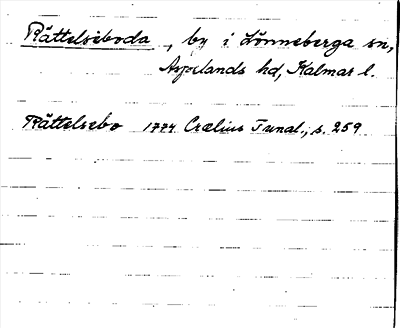 Rättelseboda, by i Lönneberga sn,
Aspelands hd, Kalmar l.
Rättelsebo 1774 Crælius Tunal., s. 259